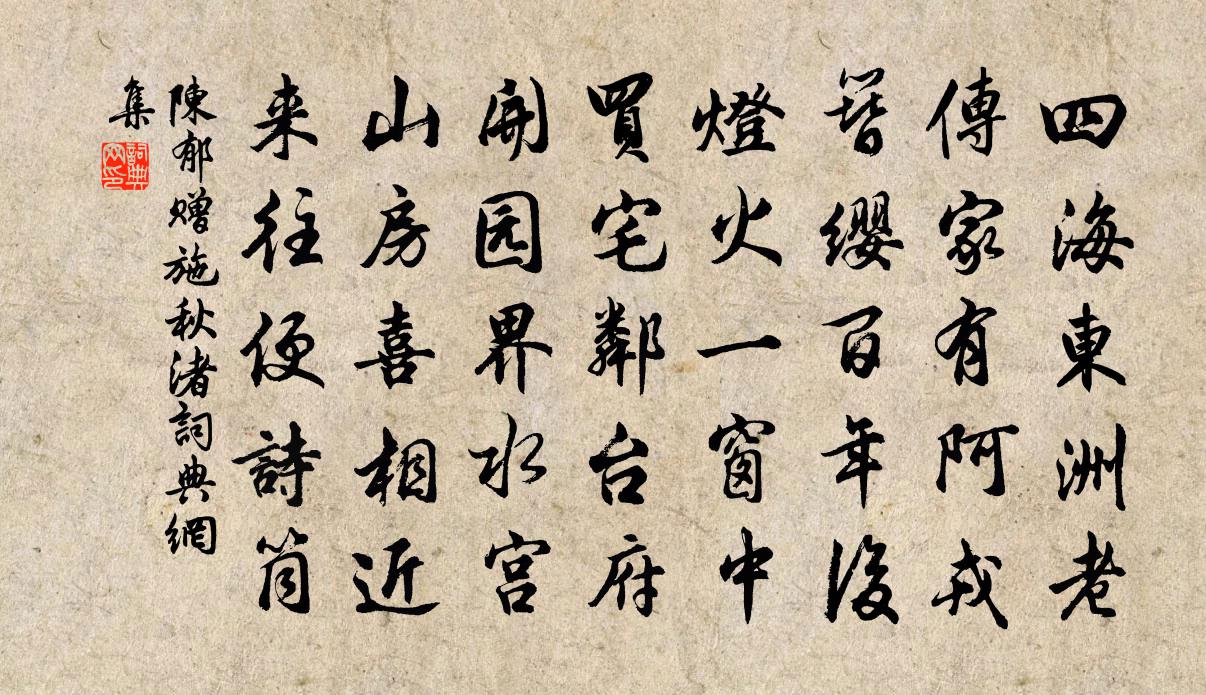 四海東洲老
傳家有阿戎
簪缨百年後
燈火一窗中
買宅鄰台府
開园界水宫
山房喜相近
来往便詩筒
陳郁贈施秋渚詞典網
集
詞典
网印